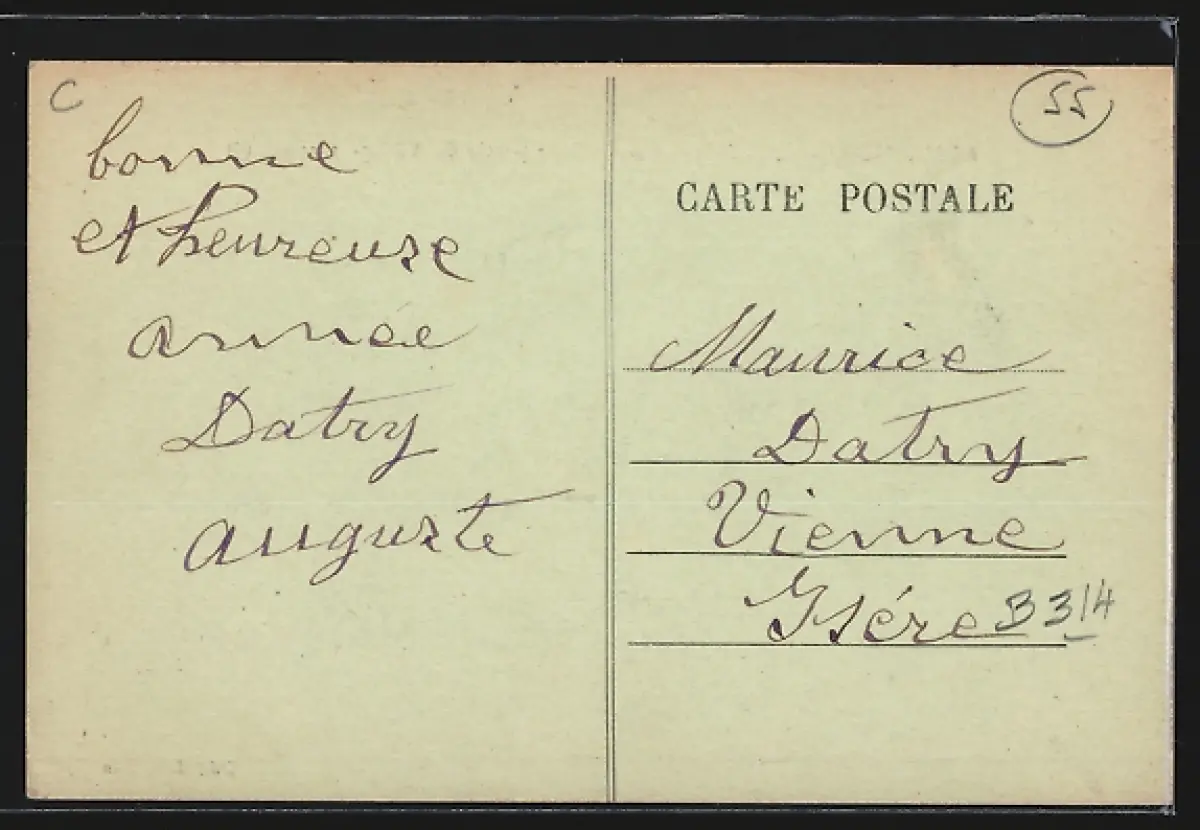 C
bonne
et heureuse
année
Datry
auguste
55
CARTE POSTALE
Maurice
Datry
Vienne
Isére
B314